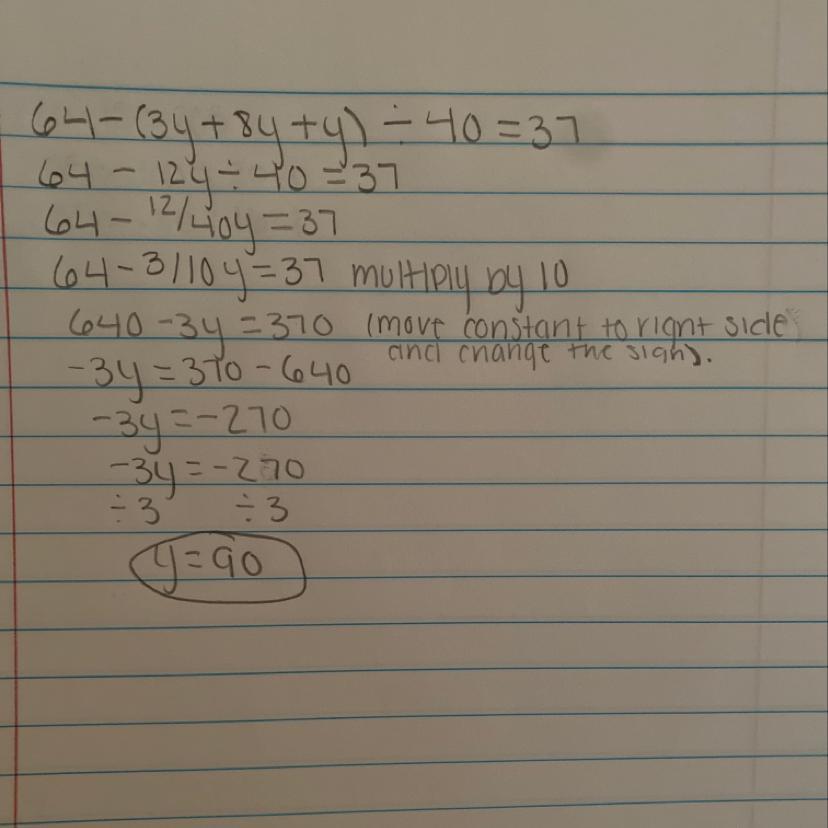 64-(3y+8y+y) ÷ 40=37
64 - 12y÷40=37
64- 12/40y=37
64-3/10y=37 multiply by 10
640-3y=370 (move constant to right side
and change the sign).
-3y=370-640
-3y=-270
-3y=-270
÷3 ÷3
y=90